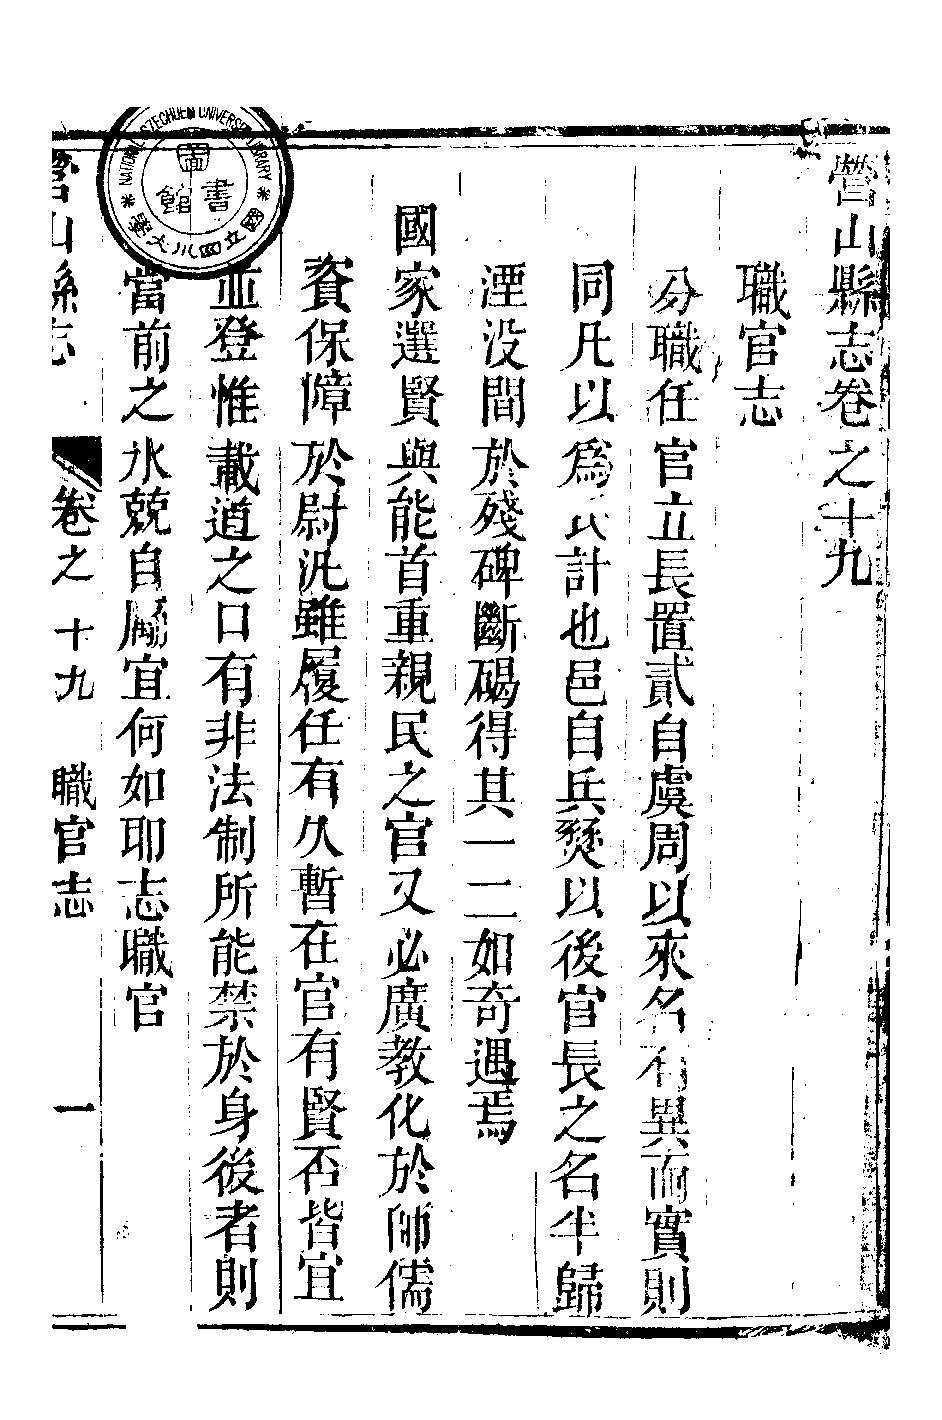 營山縣志卷之十九
職官志
分職任官立長置貳自虞周以來名有異而實則
同凡以爲民計也邑自兵燹以後官長之名半歸
湮没間於殘碑斷碣得其一二如奇遇焉
國家選賢與能首重親民之官又必廣教化於師儒
資保障於尉汛雖履任有久暫在官有賢否皆宜
並登惟載道之口有非法制所能禁於身後者則
當前之水兢自屬宜何如耶志職官
營山縣志 卷之十九 職官志 一
NATIONAL SZECHUEN UNIVERSITY LIBRARY
國立四川大學
圖書館